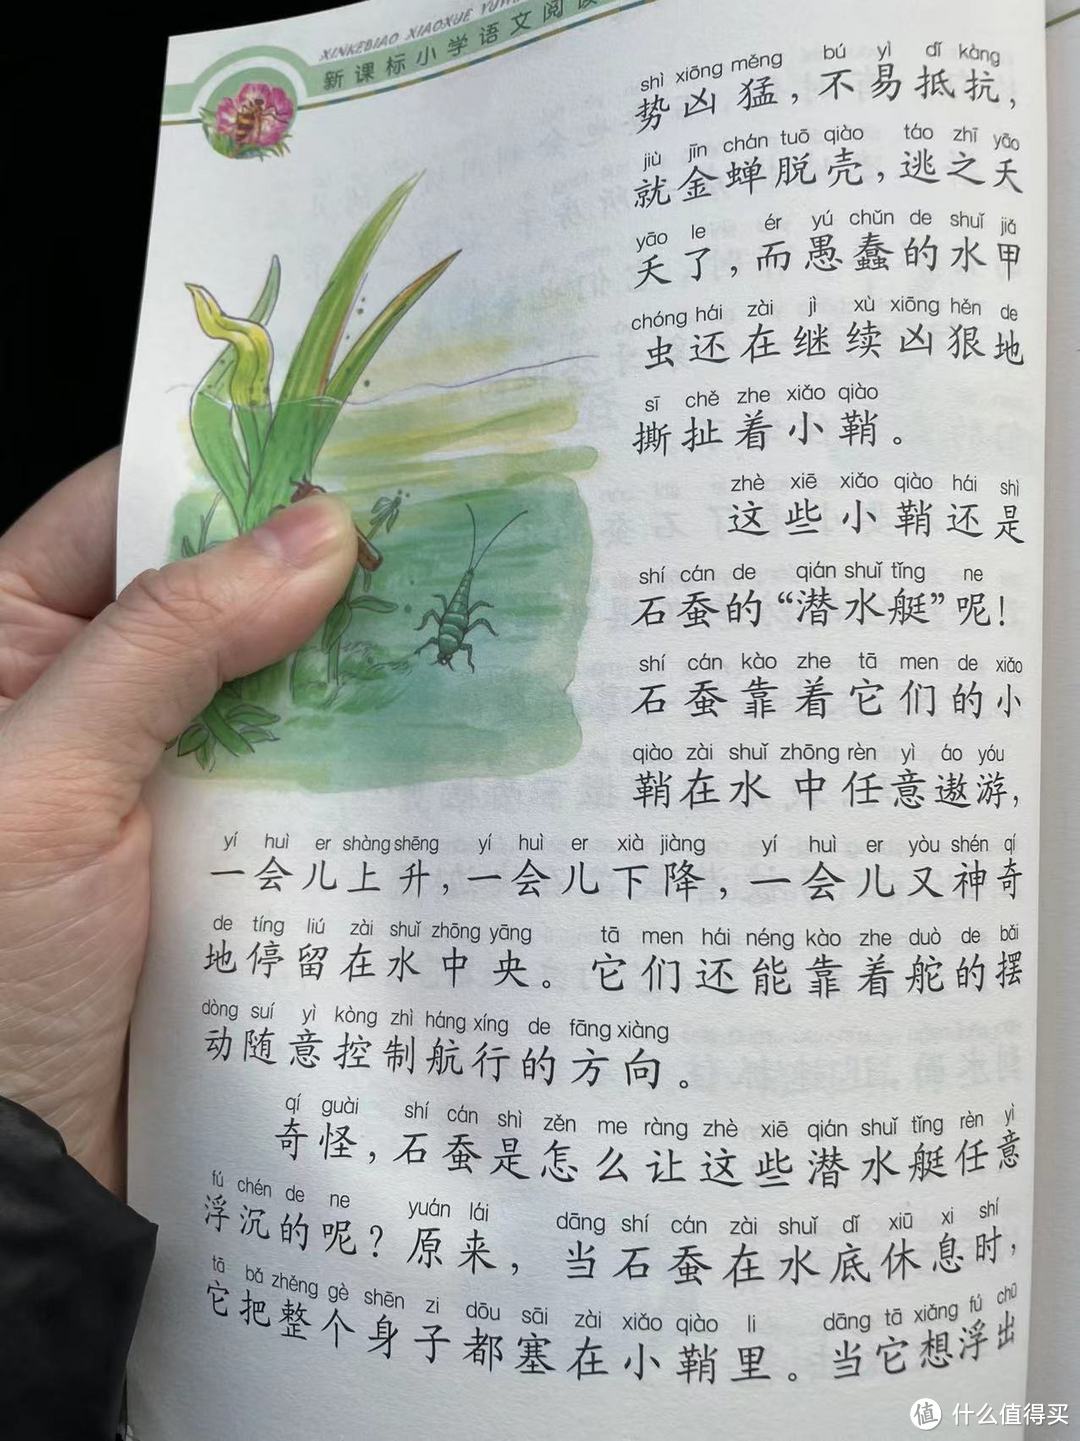 XINKEBIAO XIAOXUE YUW
新课标小学语文阅读
shì xiōng měng bú yì dǐ kàng
势凶猛，不易抵抗，
jiù jīn chán tuō qiào táo zhī yāo
就金蝉脱壳，逃之夭
yāo le ér yú chǔn de shuǐ jiǎ
夭了，而愚蠢的水甲
chóng hái zài jì xù xiōng hěn de
虫还在继续凶狠地
sī chě zhe xiǎo qiào
撕扯着小鞘。
zhè xiē xiǎo qiào hái shì
这些小鞘还是
shí cán de qián shuǐ tǐng ne
石蚕的“潜水艇”呢！
shí cán kào zhe tā men de xiǎo
石蚕靠着它们的小
qiào zài shuǐ zhōng rèn yì áo yóu
鞘在水中任意遨游，
yí huì er shàng shēng yí huì er xià jiàng yí huì er yòu shén qí
一会儿上升，一会儿下降，一会儿又神奇
de tíng liú zài shuǐ zhōng yāng tā men hái néng kào zhe duò de bǎi
地停留在水中央。它们还能靠着舵的摆
dòng suí yì kòng zhì háng xíng de fāng xiàng
动随意控制航行的方向。
qí guài shí cán shì zěn me ràng zhè xiē qián shuǐ tǐng rèn yì
奇怪，石蚕是怎么让这些潜水艇任意
fú chén de ne yuán lái dāng shí cán zài shuǐ dǐ xiū xi shí
浮沉的呢？原来，当石蚕在水底休息时，
tā bǎ zhěng gè shēn zi dōu sāi zài xiǎo qiào li dāng tā xiǎng fú chū
它把整个身子都塞在小鞘里。当它想浮出
值 什么值得买